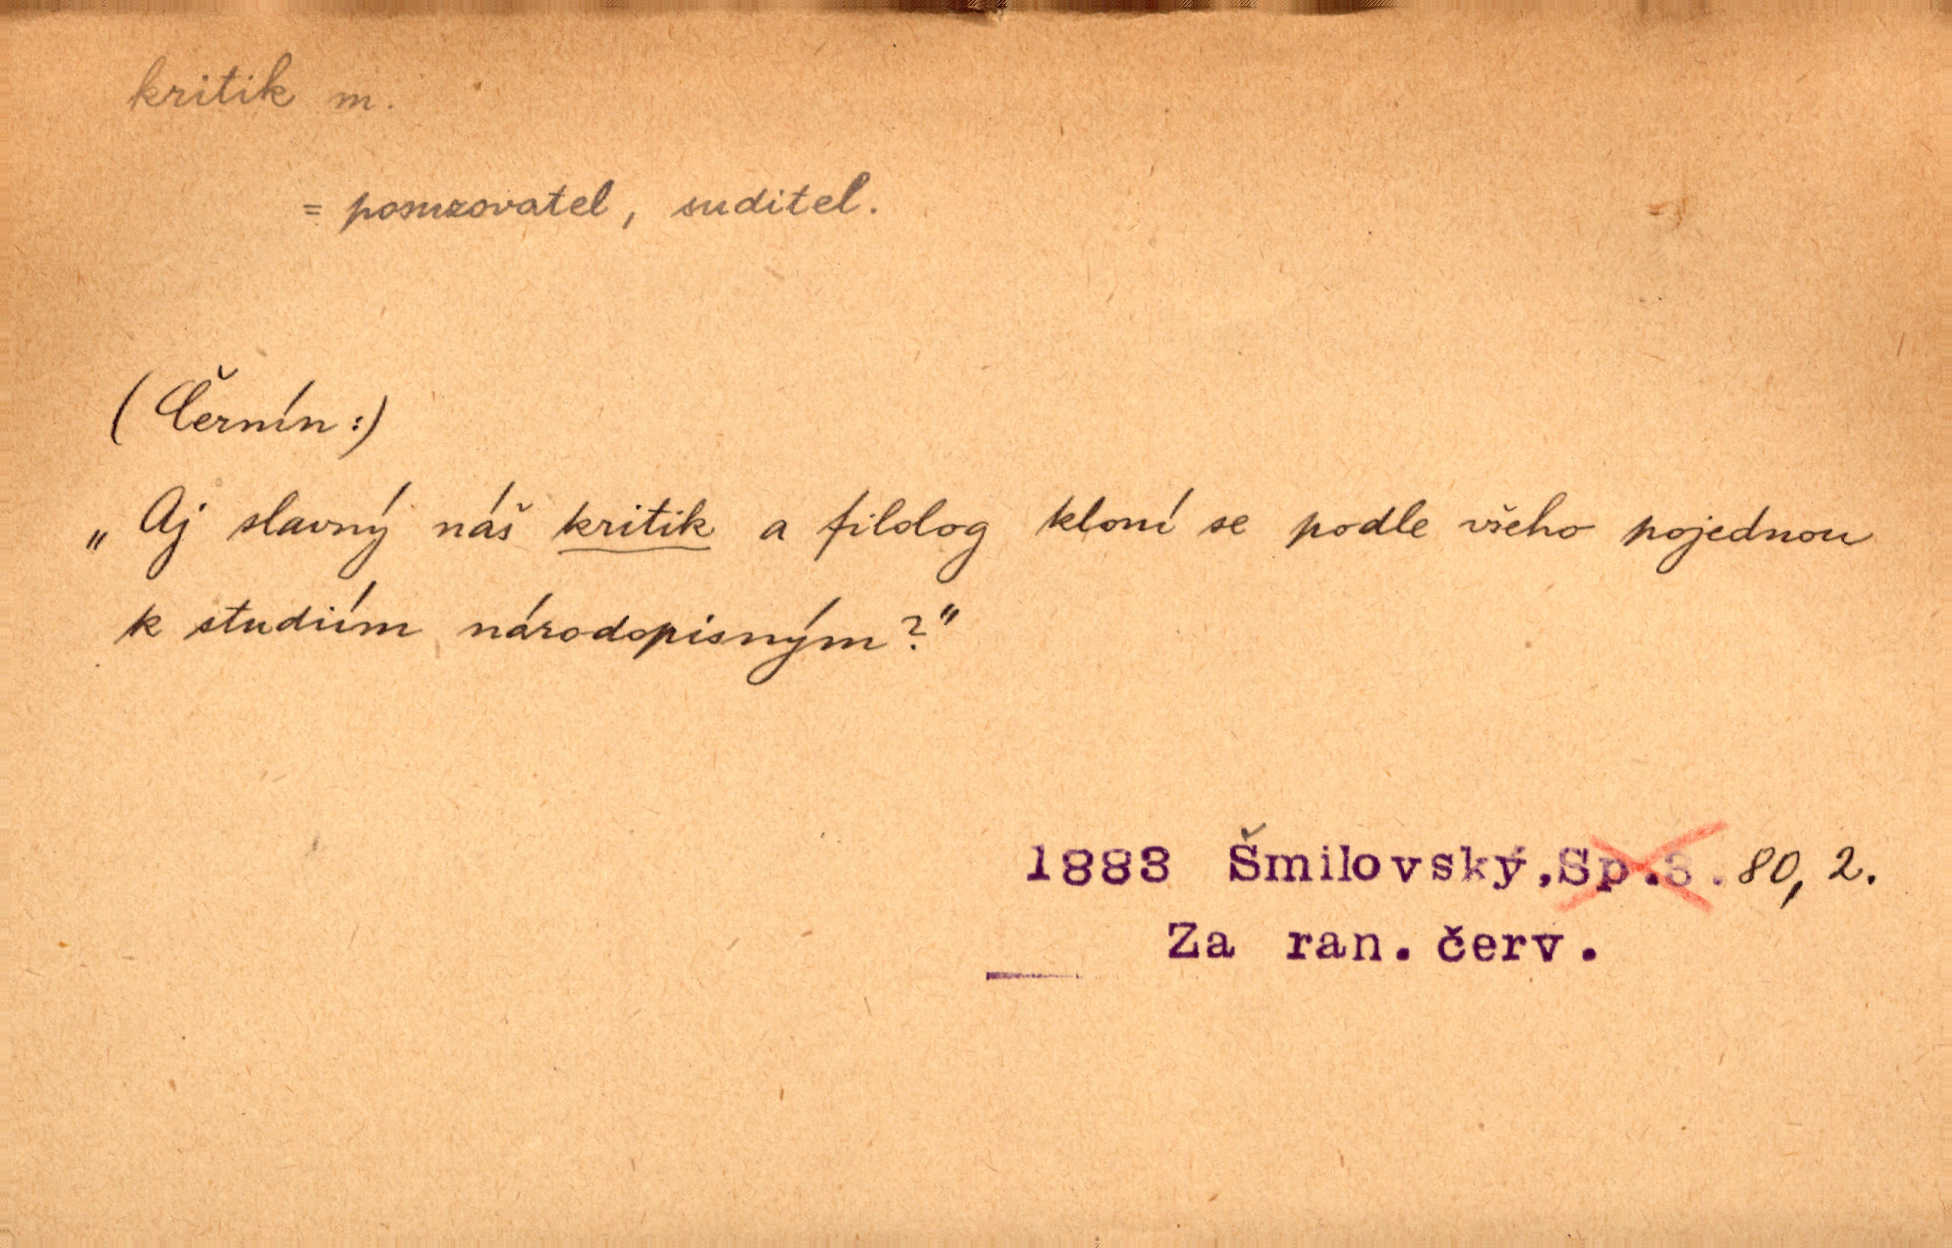 kritik m.
= posuzovatel, suditel.
(Černín:)
„Aj slavný náš kritik a filolog kloní se podle všeho pojednou
k studiím národopisným?"
1883 Šmilovský,Sp.3. 80, 2.
Za ran. červ.